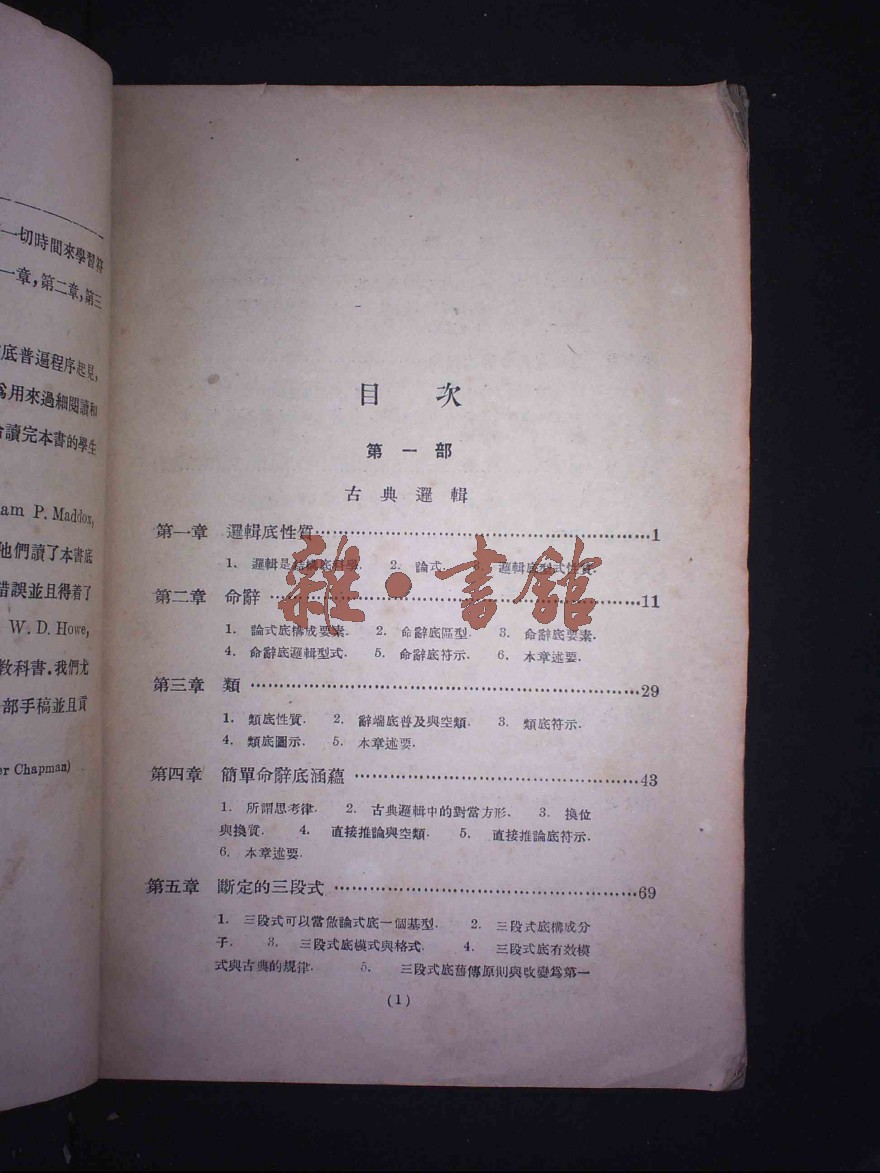 一切時間來學習
一章,第二章,第三
底普遍程序起見,
用來過細閱讀和
讀完本書的學生
am P. Maddox,
他們讀了本書底
錯誤並且得着了
W. D. Howe,
教科書.我們尤
部手稿並且貢
er Chapman)
目 次
第 一 部
古 典 邏 輯
第一章 邏輯底性質……1
1. 邏輯是結構底科學. 2. 論式. 3. 邏輯底型式性質.
第二章 命辭……11
1. 論式底構成要素. 2. 命辭底區型. 3. 命辭底要素.
4. 命辭底邏輯型式. 5. 命辭底符示. 6. 本章述要.
第三章 類……29
1. 類底性質. 2. 辭端底普及與空類. 3. 類底符示.
4. 類底圖示. 5. 本章述要.
第四章 簡單命辭底涵蘊……43
1. 所謂思考律. 2. 古典邏輯中的對當方形. 3. 換位
與換質. 4. 直接推論與空類. 5. 直接推論底符示.
6. 本章述要.
第五章 斷定的三段式……69
1. 三段式可以當做論式底一個基型. 2. 三段式底構成分
子. 3. 三段式底模式與格式. 4. 三段式底有效模
式與古典的規律. 5. 三段式底舊傳原則與改變爲第一
(1)
雜·書館